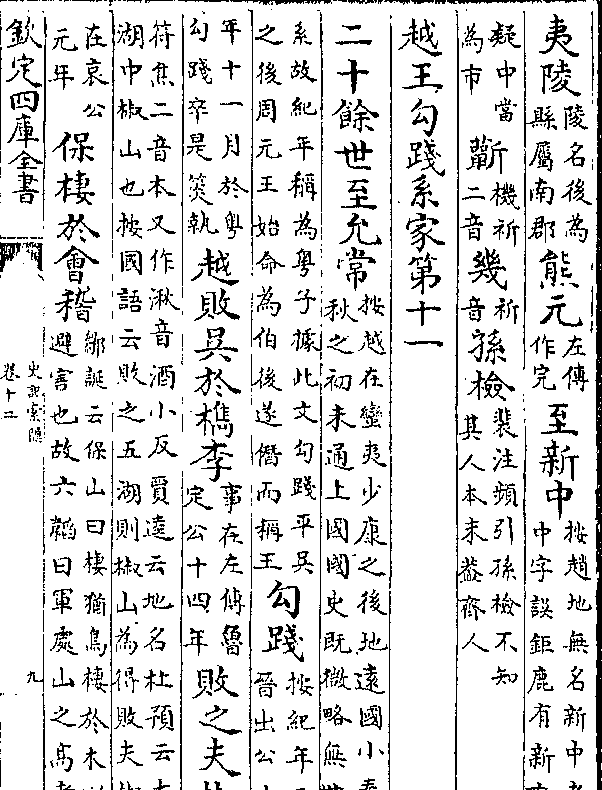 夷陵陵名後為縣屬南郡熊元左傳作完至新中按趙地無名新中者中字誤鉅鹿有新
疑中當為市蘄機祈二音幾祈音孫檢裴注頻引孫檢不知其人本末蓋齊人
越王勾踐系家第十一
二十餘世至允常按越在蠻夷少康之後地遠國小春秋之初未通上國國史既微略無世
系故紀年稱為粵子據此文勾踐平吳之後周元王始命為伯後遂僭而稱王勾踐按紀年晉出公
年十一月於粵勾踐卒是菼執越敗吳於檇李事在左傳魯定公十四年敗之夫
符焦二音本又作湫音酒小反賈逵云地名杜預云太湖中椒山也按國語云敗之五湖則椒山為得敗夫椒
在哀公元年保棲於會稽鄒誕云保山曰棲猶鳥棲於木以避害也故六韜曰軍處山之高者
欽定四庫全書
史記索隱
卷十二
九